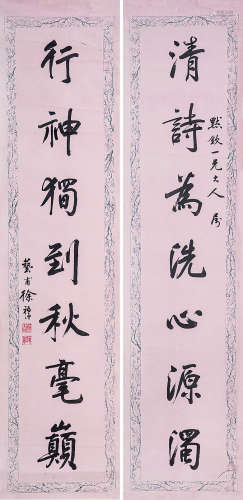 清詩為洗心源濁
默欽一兄大人屬
行神獨到秋毫巔
藝甫徐